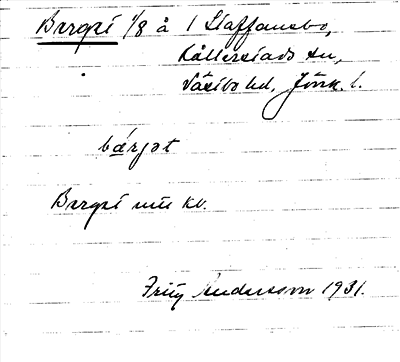 Berget 1/8 å 1 Staffansbo,
Kållerstads sn,
Västbo hd, Jönk. l.
bǽrjət
Berget utu kv.
Fritz Andersson 1931.